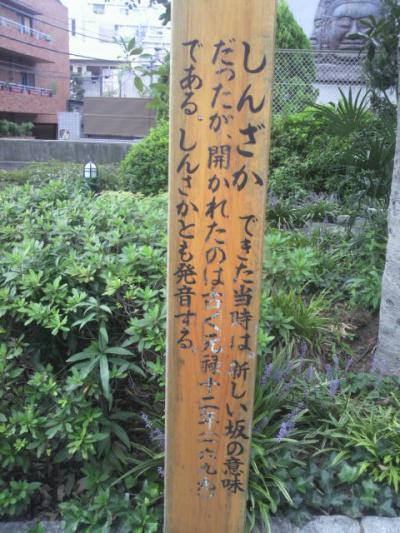 しんざか できた当時は、新しい坂の意味
だったが、開かれたのは古く元禄十二年(一六九九)
である。しんさかとも発音する。